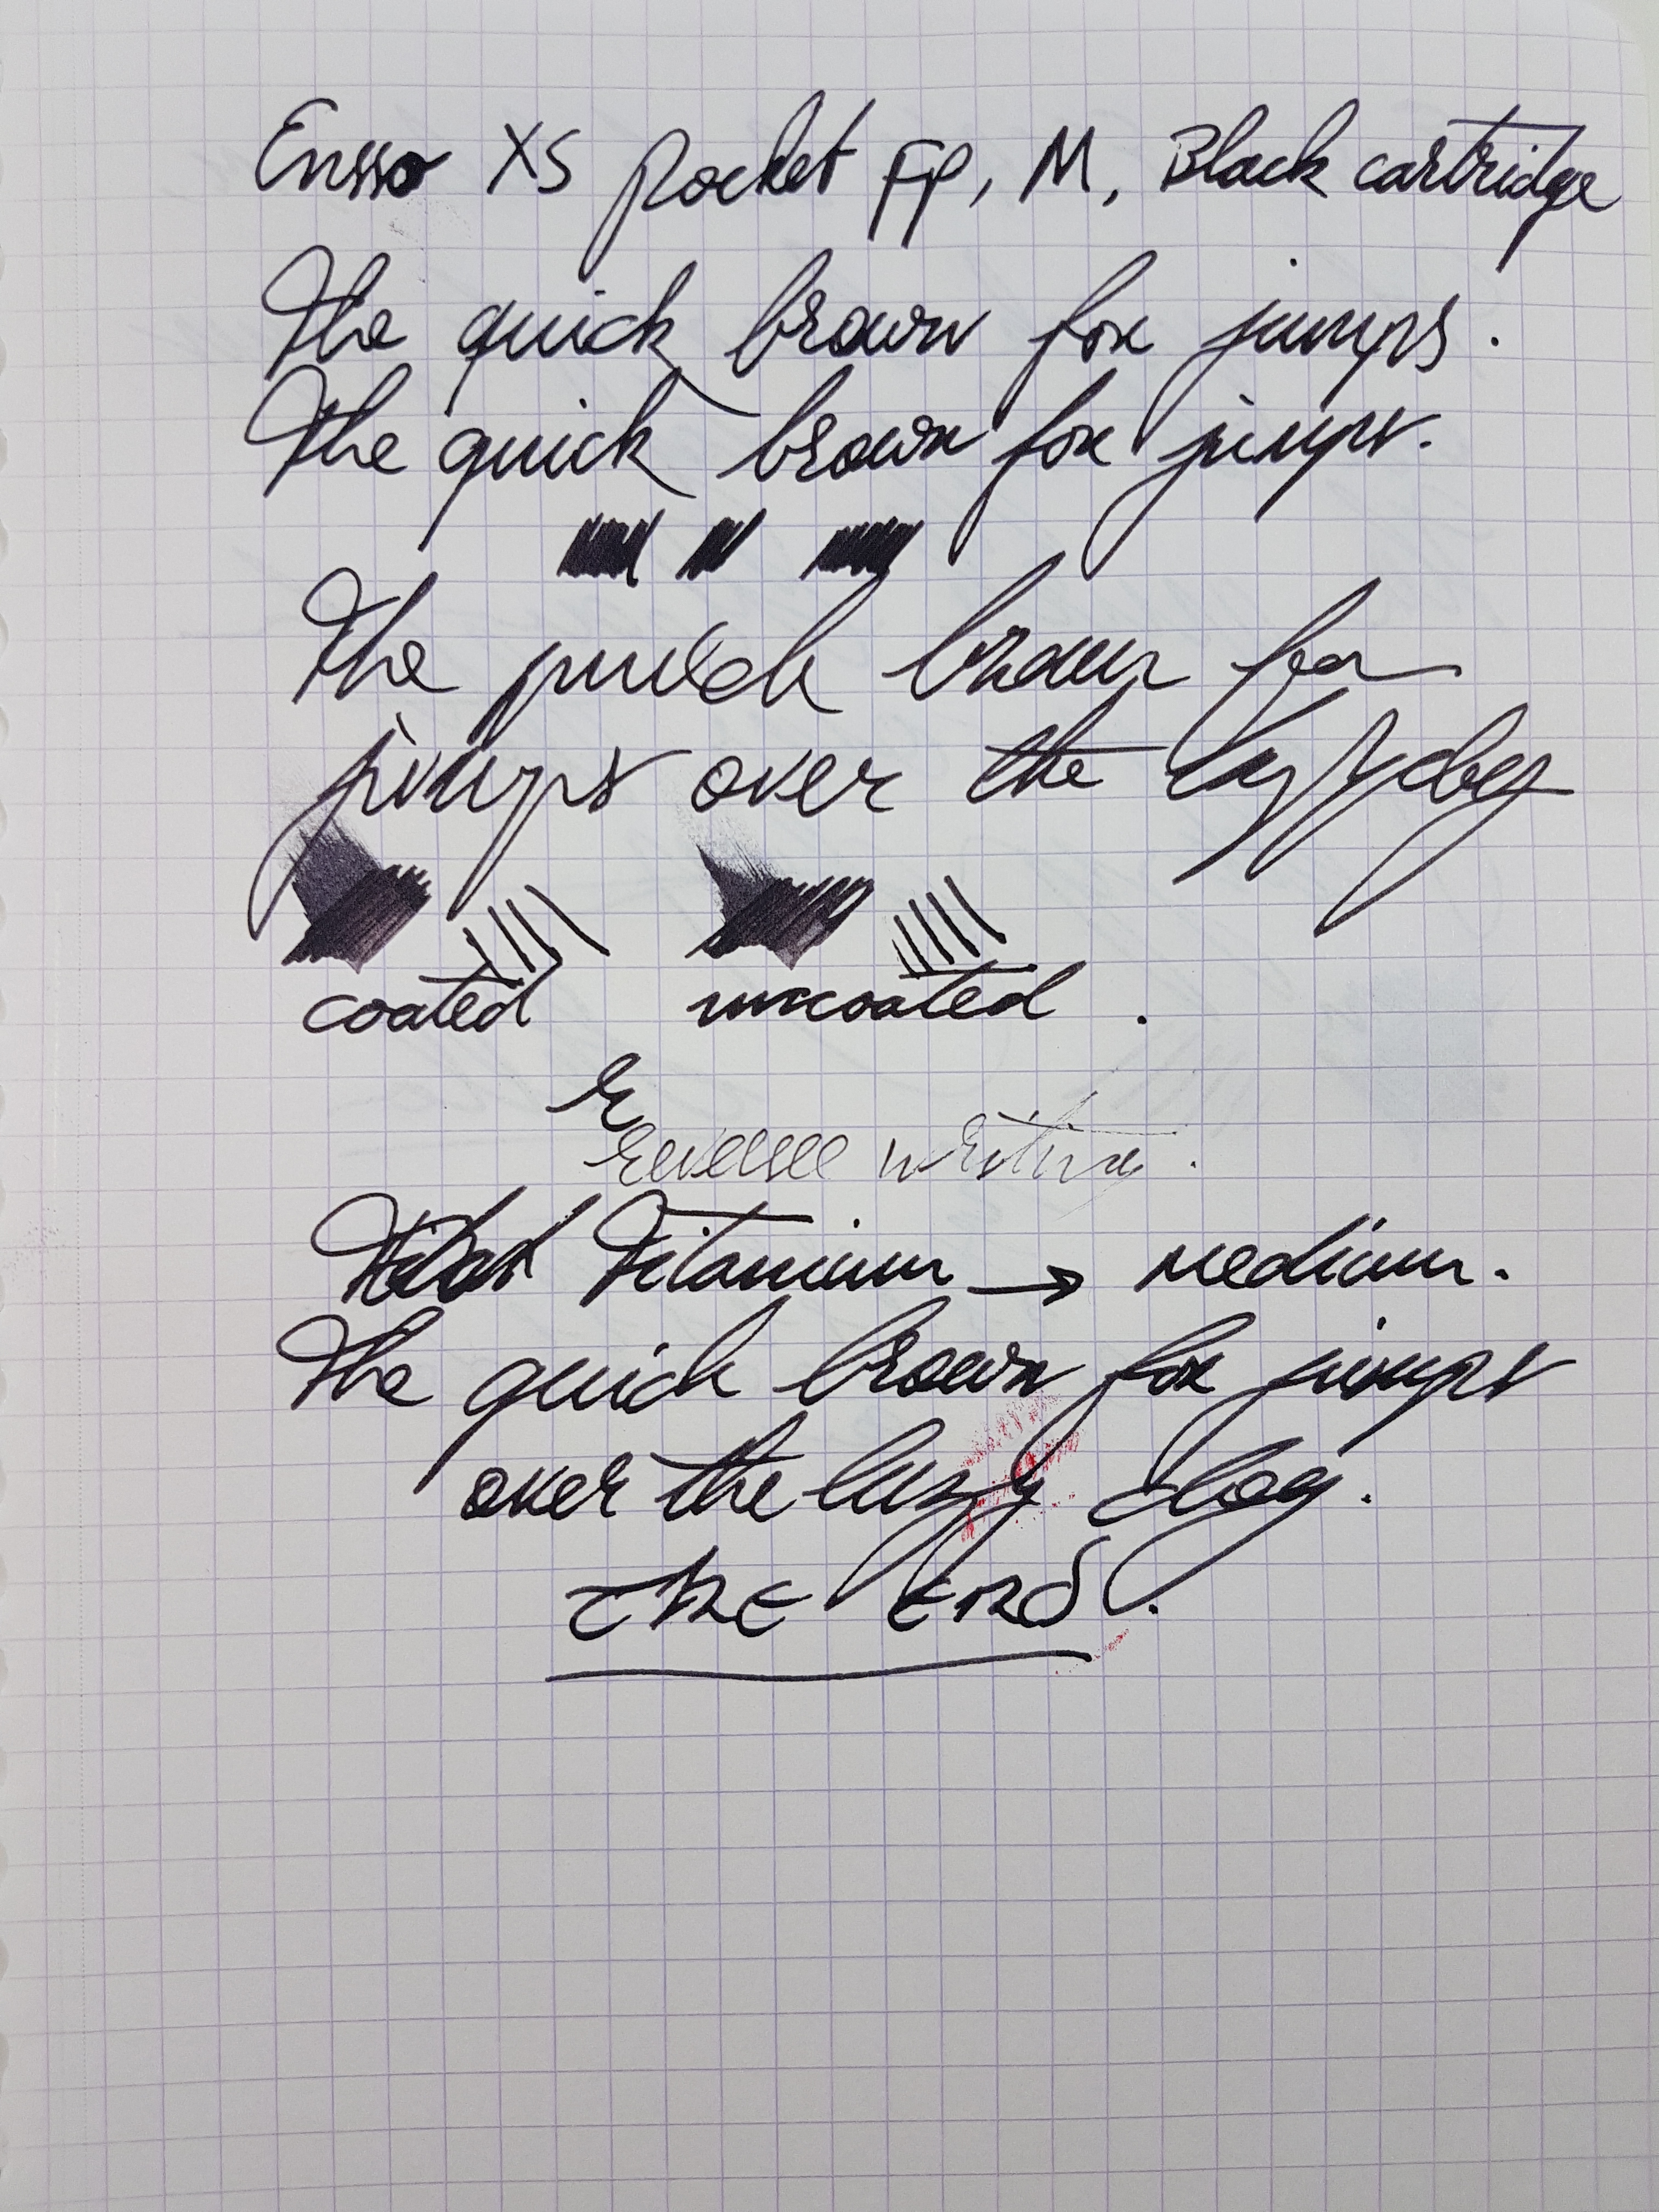 Ensso XS pocket FP, M, Black cartridge
The quick brown fox jumps.
The quick brown fox jumps.
The quick brown fox
jumps over the lazy dog
coated uncoated.
R
reverse writing.
Titanium → Medium.
The quick brown fox jumps
over the lazy dog.
The End.